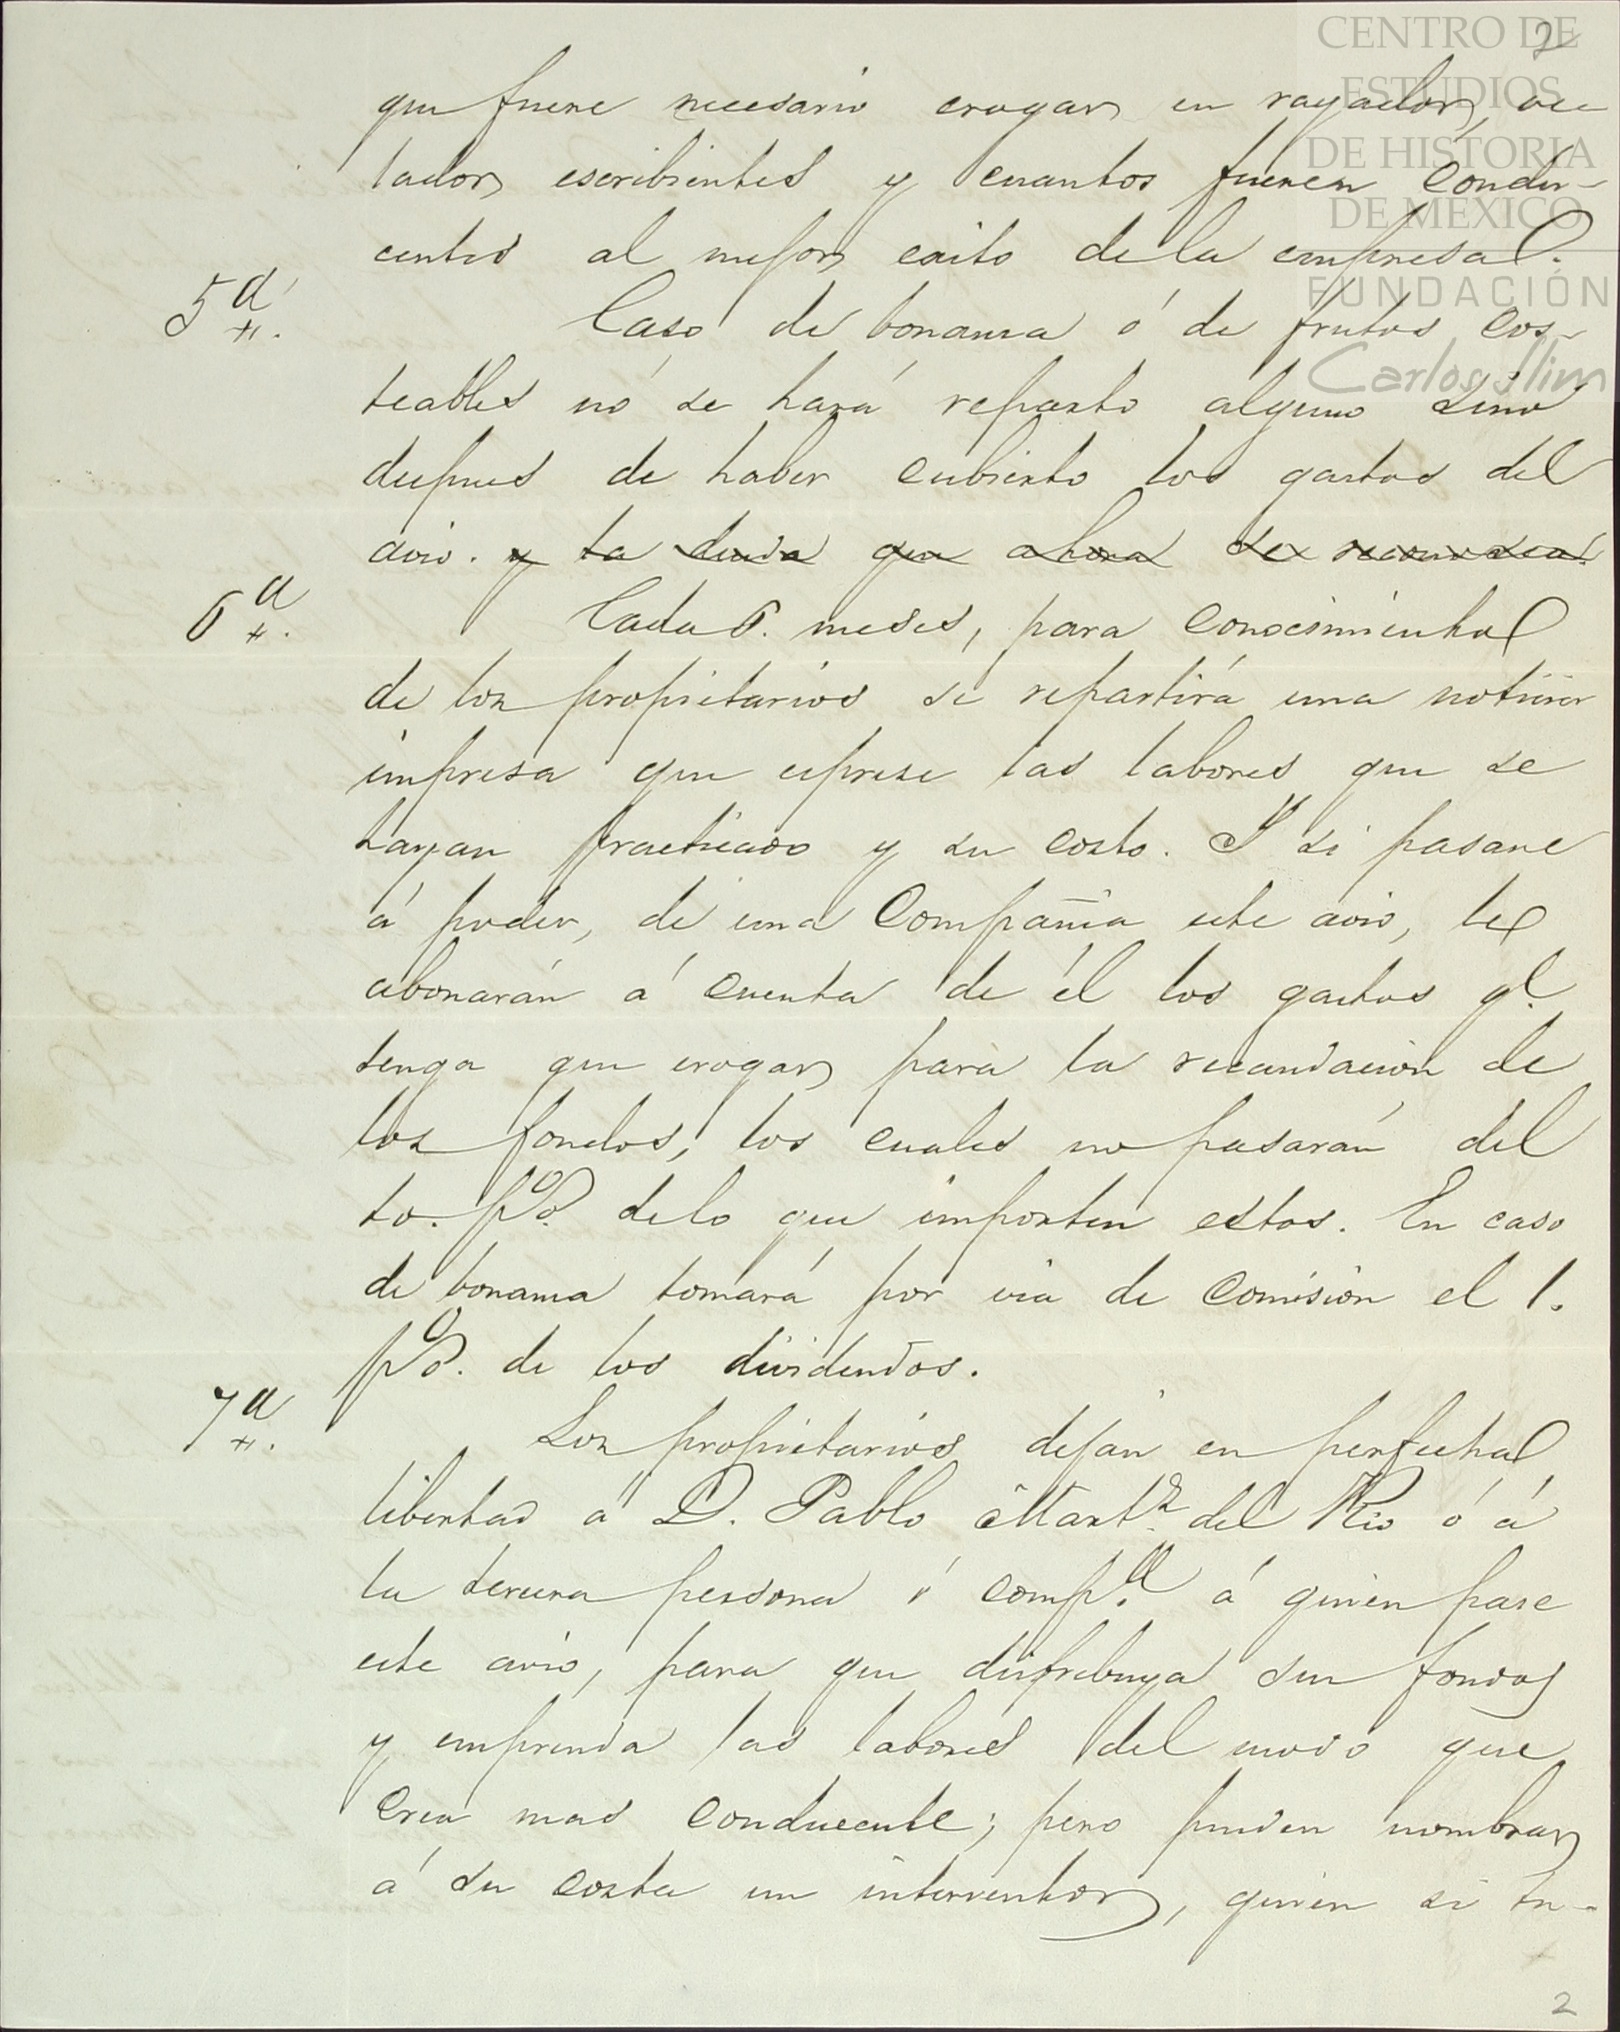 2
CENTRO DE
ESTUDIOS
DE HISTORIA
DE MÉXICO
FUNDACIÓN
Carlos Slim
que fuere necesario erogar en rayador, ve-
lador, escribientes y cuantos fueren condu-
centes al mejor exito de la empresa.
5ª. Caso de bonanza ó de frutos cos-
teables no se hará reparto alguno sino
despues de haber cubierto los gastos del
avio. y la deuda que ahora se reconosca.
6ª. Cada 6. meses, para conocimiento
de los propietarios se repartirá una noticia
impresa que esprese las labores que se
hayan practicado y su costo. Y si pasare
á poder, de una Compañia este avio, le
abonarán á cuenta de él los gastos qe.
tenga que erogar para la recaudacion de
los fondos, los cuales no pasarán del
10. p%. de lo que importen estos. En caso
de bonanza tomará por via de comision el 1.
p%. de los dividendos.
7ª. Los propietarios dejan en perfecta
libertad á D. Pablo Martz. del Rio ó á
la tercera persona ó compª. á quien pase
este avio, para que distribuya sus fondos
y emprenda las labores del modo que
crea mas conducente; pero pueden nombrar
á su costa un interventor, quien si tu-
2